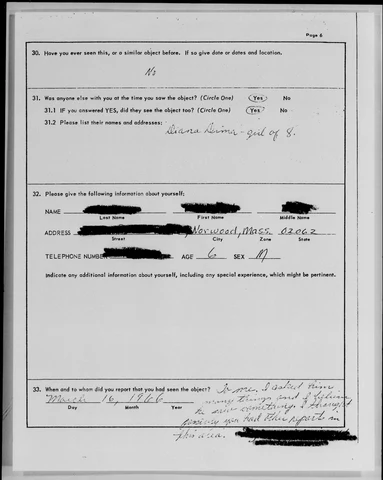 Page 6
30. Have you ever seen this, or a similar object before. If so give date or dates and location.
No
31. Was anyone else with you at the time you saw the object? (Circle One) Yes No
31.1 IF you answered YES, did they see the object too? (Circle One) Yes No
31.2 Please list their names and addresses:
Diana - girl of 8.
32. Please give the following information about yourself:
NAME
Last Name First Name Middle Name
ADDRESS Norwood, Mass 02062
Street City Zone State
TELEPHONE NUMBER AGE 6 SEX M
Indicate any additional information about yourself, including any special experience, which might be pertinent.
33. When and to whom did you report that you had seen the object?
March 16, 1966
Day Month Year
To me. I asked him
many things and I believe
he saw something. I thought
you had other reports in
this area.